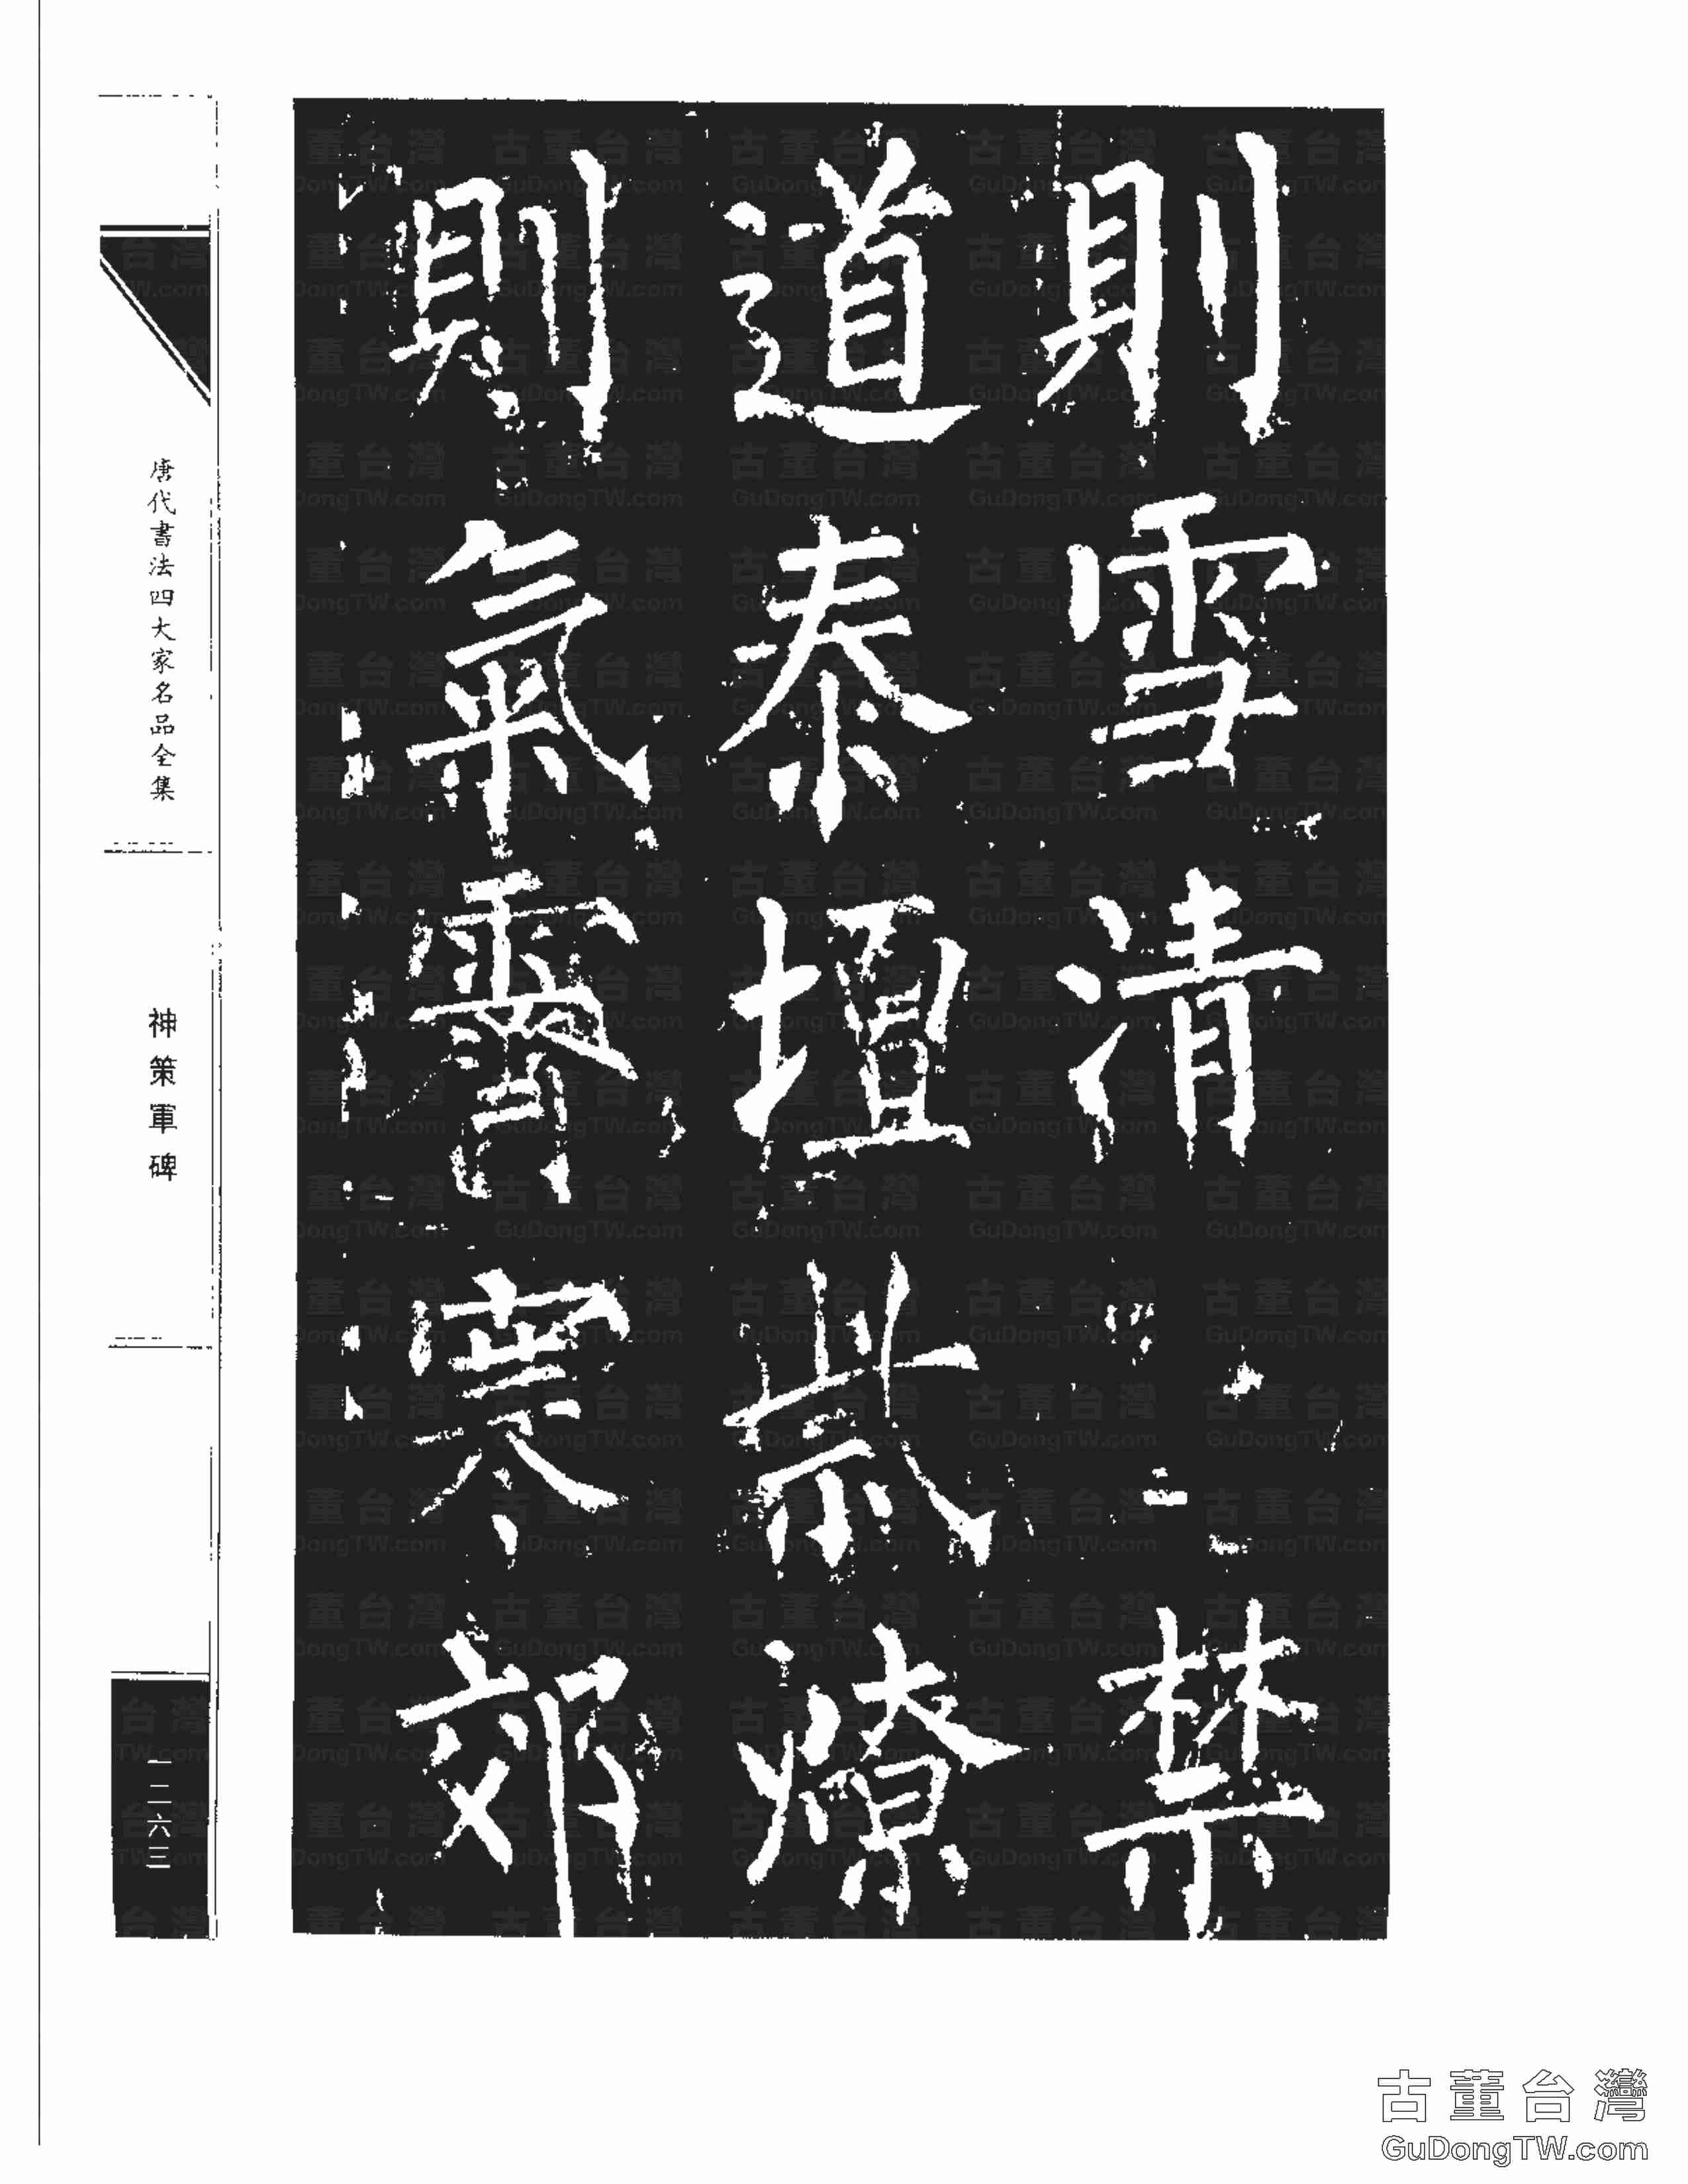 則雪清禁
道泰壇祡燎
則氣霽寒郊
唐代書法四大家名品全集
神策軍碑
一二六三
古董台灣
GuDongTW.com